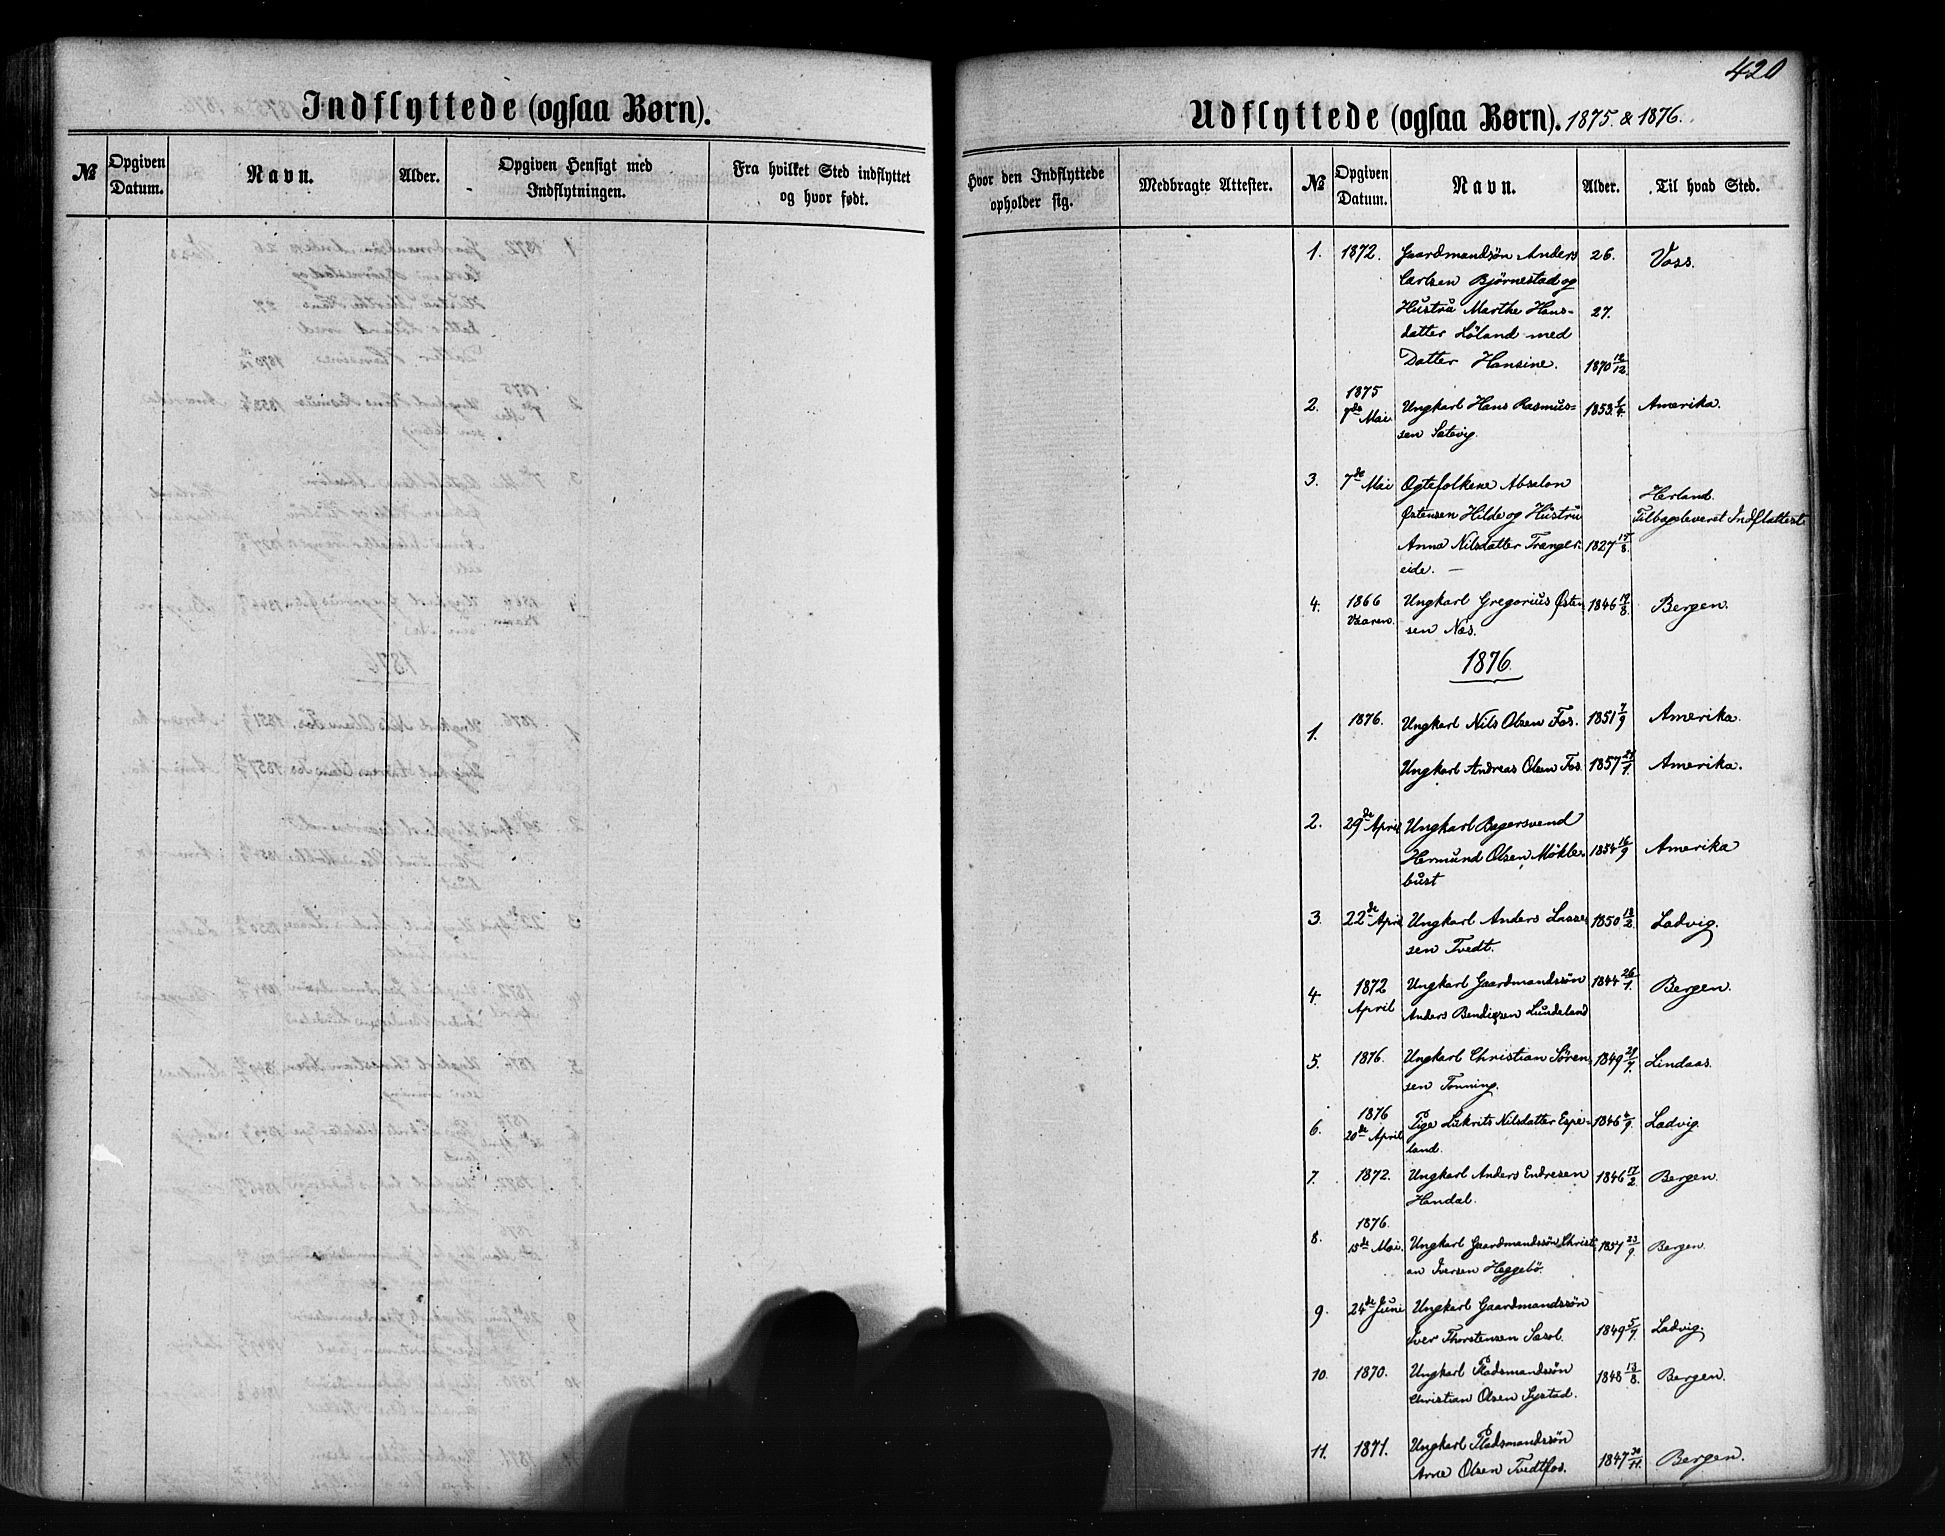 420
Indflyttede (ogsaa Børn).
№
Opgiven Datum.
Navn.
Alder.
Opgiven Hensigt med Indflytningen.
Fra hvilket Sted indflyttet og hvor født.
Udflyttede (ogsaa Børn). 1875. & 1876.
Hvor den Indflyttede opholder sig.
Medbragte Attester.
№
Opgiven Datum.
Navn.
Alder.
Til hvad Sted.
1. 1872. Gaardmandsøn Anders 26. Voss.
Carlsen Bjørnestad og
Hustru Marthe Hans- 27.
datter Löland med
Datter Hansine. 1870 12/12
1875
2. 7de Mai Ungkarl Hans Rasmus- 1853 Amerika.
sen Satevig.
3. 7de Mai Ægtefolkene Absalon
Herland.
Østensen Hilde og Hustru Tilbageleveret Indflattest
Anna Nilsdatter Trænger- 1827 15/8.
eide. —
4. 1866 Ungkarl Gregorius Østen 1846 19/8. Bergen.
Vaaren. sen Næs.
1876.
1. 1876. Ungkarl Nils Olsen Fos. 1851 7/9 Amerika.
Ungkarl Andreas Olsen Fos. 1857 Amerika.
2. 29de April Ungkarl Bagersvend
Hermund Olsen Møkle- 1854 16/9 Amerika
bust
3. 22de April Ungkarl Anders Lasse- 1850 Ladvig.
sen Tvedt.
4. 1872 Ungkarl Gaardmandssøn 1844 26/1. Bergen.
April Anders Bendigsen Lundeland
5. 1876. Ungkarl Christian Sören- 1849 Lindaas.
sen Tonning.
1876
6. 20de April Pige Lukrits Nilsdatter Espe- 1846 Ladvig.
land.
7. 1872. Ungkarl Anders Endresen 1846 17/2. Bergen.
Handal.
1876.
8. 15de Mai. Ungkarl Gaardmandssøn Christi 1857 23/9. Bergen.
an Iversen Heggebö.
9. 24de Juni Ungkarl Gaardmandssön
Iver Thorstensen Sæsol. 1849 Ladvig.
10. 1870. Ungkarl Pladsmandssön 1848 13/8. Bergen.
Christian Olsen Systad.
11. 1871. Ungkarl Pladsmandssön
Arne Olsen Tvedtfos. 1847 30/11. Bergen.